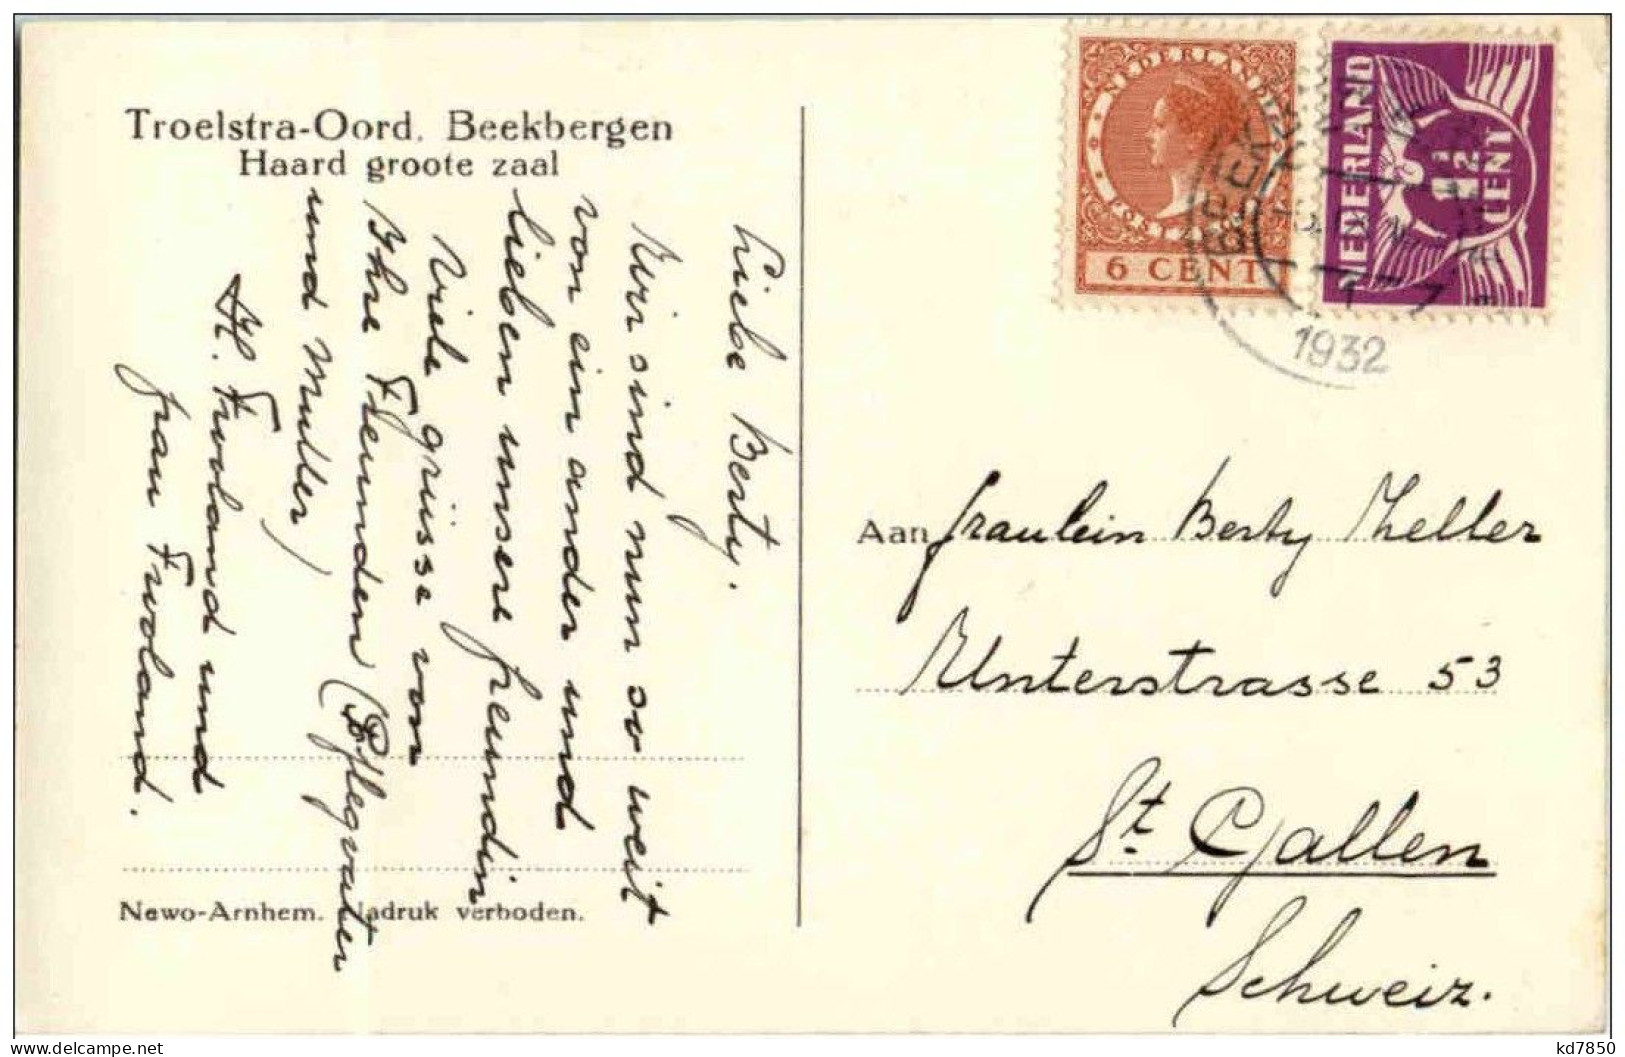 Troelstra-Oord. Beekbergen
Haard groote zaal
Liebe Berty.
Wir sind nun so weit
von ein ander und
lieben unsere freundin
Viele grüsse von
Ihre Freunden (Pflegvater
und Mutter)
H. Frvoland und
frau Frvoland.
Newo-Arnhem. Nadruk verboden.
NEDERLAND
POSTZEGEL
6 CENT
NEDERLAND
1½
CENT
1932
Aan fraulein Berty Zeller
Unterstrasse 53
St. Gallen
Schweiz.
delcampe.net
kd7850